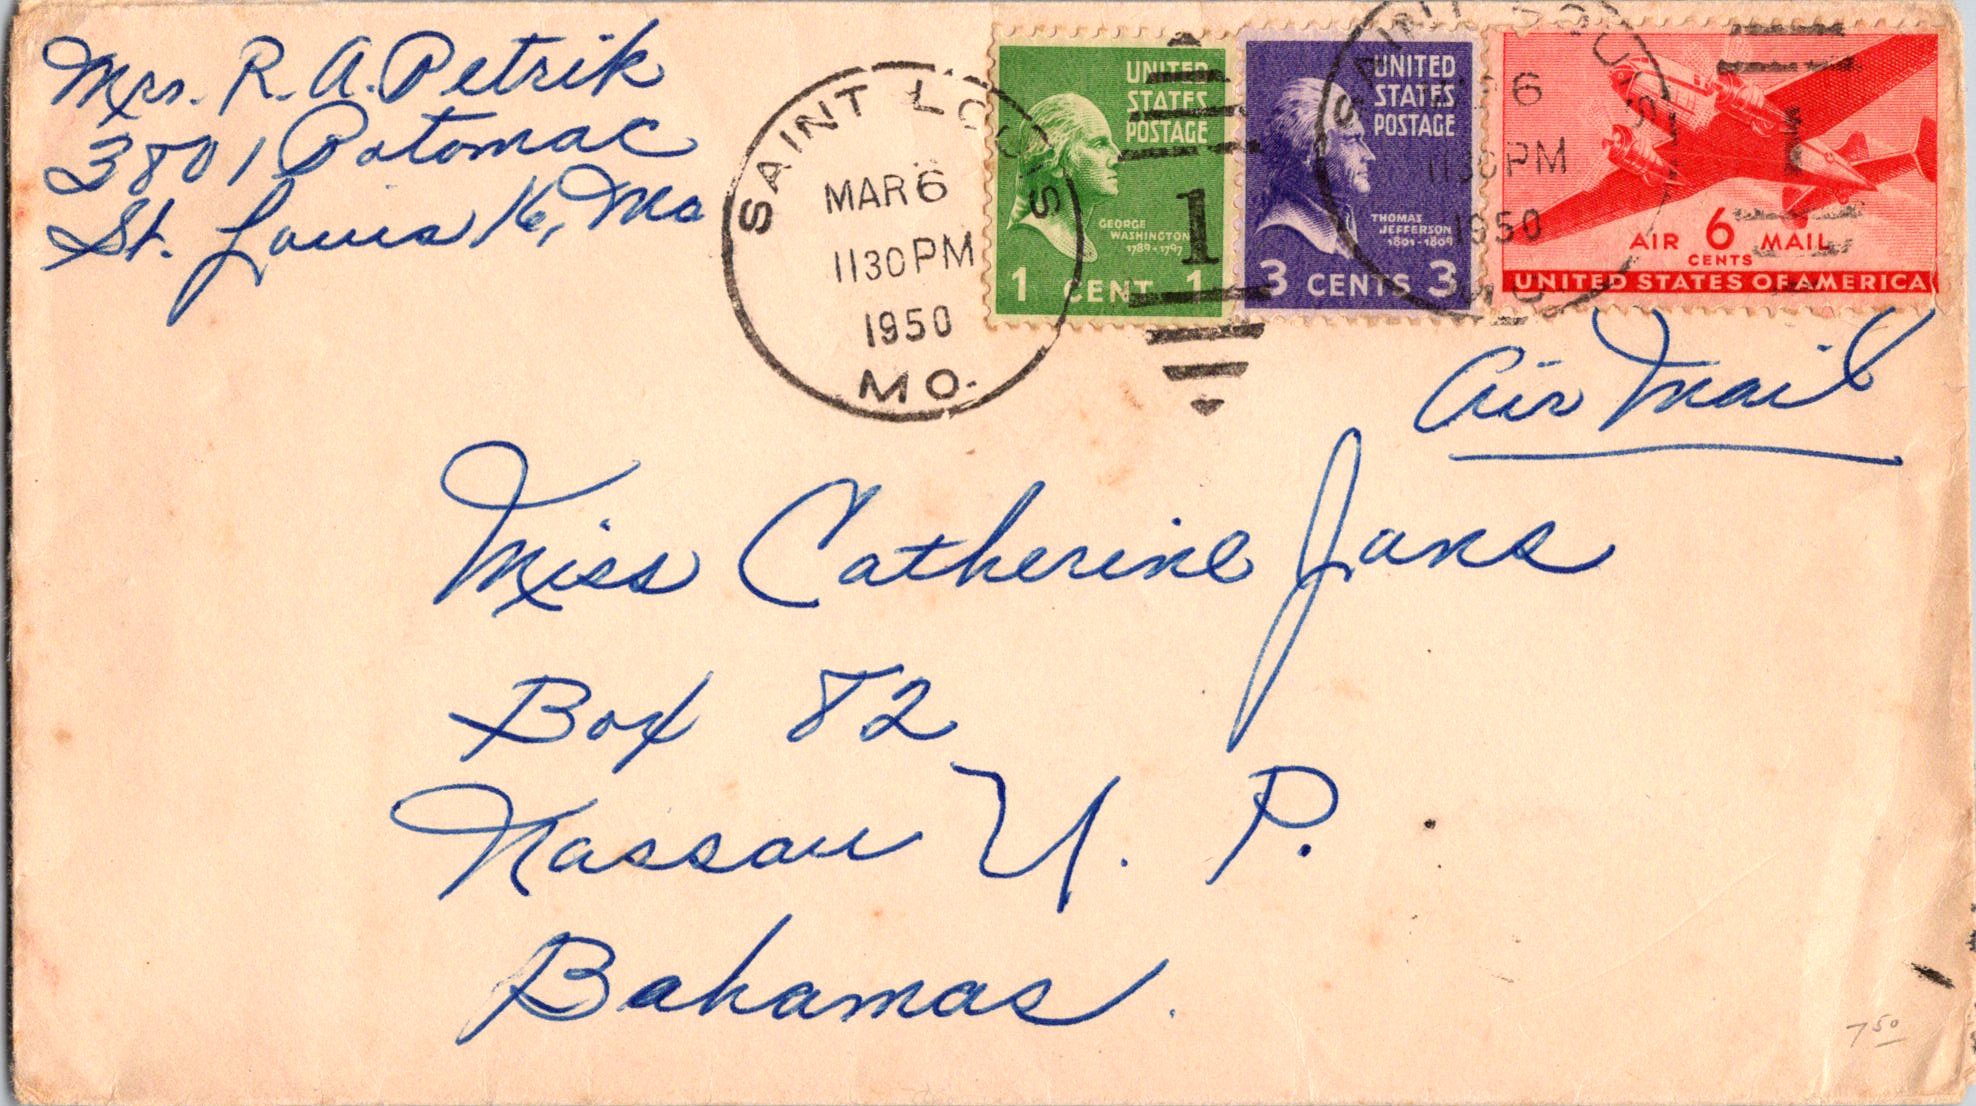 Mrs. R. A. Petrik
3801 Potomac
St. Louis 16, Mo
SAINT LOUIS
MAR 6
1130 PM
1950
MO.
UNITED
STATES
POSTAGE
1
GEORGE
WASHINGTON
1789-1797
1 CENT 1
UNITED
STATES
POSTAGE
THOMAS
JEFFERSON
1801-1809
3 CENTS 3
SAINT LOUIS
6
1130 PM
1950
MO.
1
AIR 6 MAIL
CENTS
UNITED STATES OF AMERICA
Air Mail
Miss Catherine Jans
Box 82
Nassau N. P.
Bahamas.
7 50